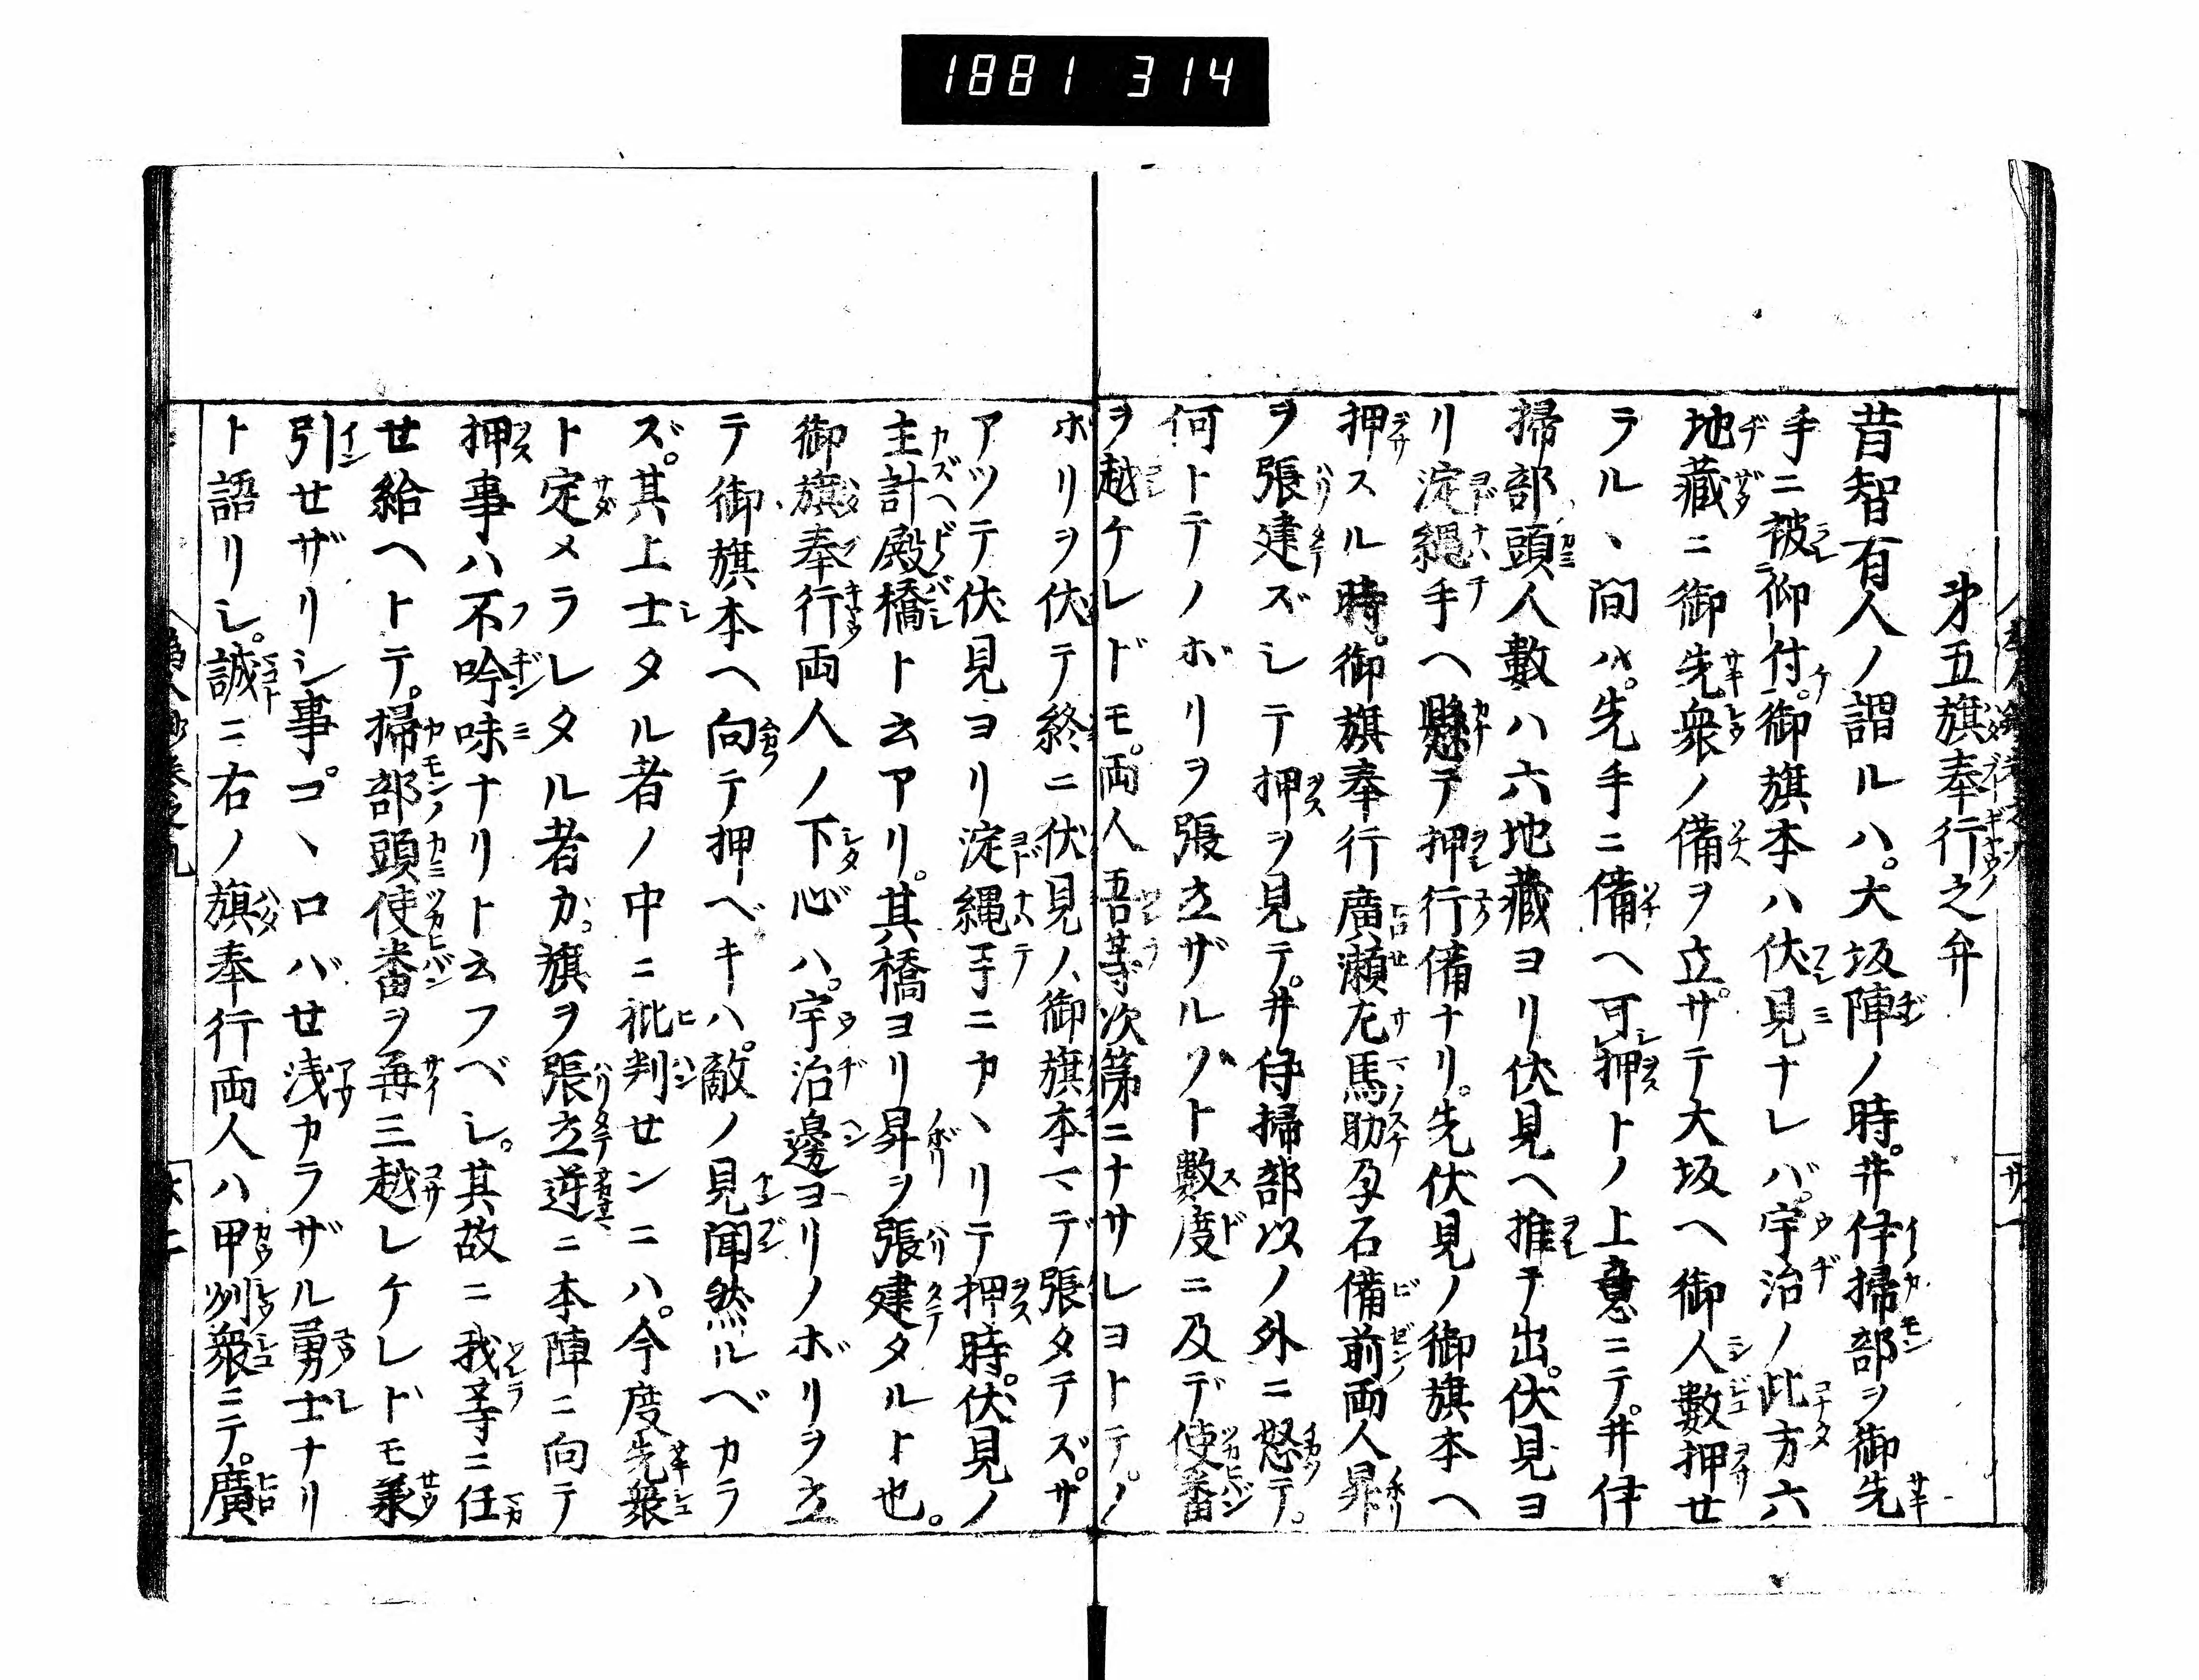 1881 314
㐧五旗奉行之弁
昔智有人ノ謂ルハ。大坂陣ノ時。井伊掃部ヲ御先
手ニ被仰付。御旗本ハ伏見ナレバ。宇治ノ此方六
地藏ニ御先衆ノ備ヲ立。サテ大坂ヘ御人數押セ
ラル丶間ハ。先手ニ備ヘ可押トノ上意ニテ。井伊
掃部頭人數ハ六地藏ヨリ伏見ヘ推テ出。伏見ヨ
リ淀縄手ヘ懸テ押行備ナリ。先伏見ノ御旗本ヘ
押スル時。御旗奉行廣瀬左馬助孕石備前両人昇
ヲ張建ズシテ押ヲ見テ。井伊掃部以ノ外ニ怒テ。
何トテノボリヲ張立ザルゾト數度ニ及デ使番
ヲ越ケレドモ。両人吾等次第ニナサレヨトテ。ノ
ボリヲ伏テ終ニ伏見ノ御旗本マデ張タテズ。サ
アツテ伏見ヨリ淀縄手ニカ丶リテ押時。伏見ノ
主計殿橋ト云アリ。其橋ヨリ昇ヲ張建タルト也。
御旗奉行両人ノ下心ハ。宇治邊ヨリノボリヲ立
テ御旗本ヘ向テ押ベキハ。敵ノ見聞然ルベカラ
ズ。其上士タル者ノ中ニ批判センニハ。今度先衆
ト定メラレタル者カ。旗ヲ張立逆ニ本陣ニ向テ
押事ハ不吟味ナリト云フベシ。其故ニ我等ニ任
セ給ヘトテ。掃部頭使番ヲ再三越レケレドモ承
引セザリシ事。コ丶ロバセ浅カラザル勇士ナリ
ト語リシ。誠ニ右ノ旗奉行両人ハ甲州衆ニテ。廣